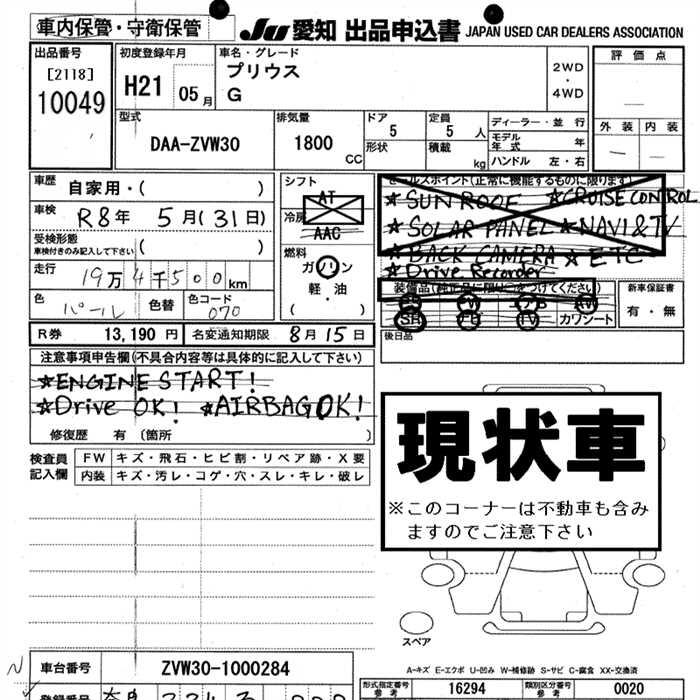 車内保管・守衛保管
JU 愛知 出品申込書 JAPAN USED CAR DEALERS ASSOCIATION
出品番号
[2118]
10049
初度登録年月
H21 05月
車名・グレード
プリウス
G
2WD
・
4WD
評価点
外装 内装
型式
DAA-ZVW30
排気量
1800
CC
ドア
5
形状
定員
5 人
積載
kg
ディーラー・並行
モデル年式 年
ハンドル 左・右
車歴 自家用・( )
車検 R8年 5月(31日)
受検形態
車検付きのみ記入して下さい ( )
走行 19万4千500km
色 パール 色替 色コード 070
シフト
AT
冷房
AAC
燃料
ガソリン
軽・油
( )
セールスポイント(正常に機能するものに限ります)
★SUNROOF ★CRUISE CONTROL
★SOLAR PANEL ★NAVI&TV
★BACK CAMERA ★ETC
★Drive Recorder
装備品(純正品に限り○をつけてください)
SR TV カワシート
新車保証書
有・無
後日品
R券 13,190円 名変通知期限 8月15日
注意事項申告欄(不具合内容等は具体的に記入して下さい)
★ENGINE START!
★Drive OK! ★AIRBAG OK!
修復歴 有 (箇所 )
検査員記入欄
FW キズ・飛石・ヒビ割・リペア跡・X要
内装 キズ・汚レ・コゲ・穴・スレ・キレ・破レ
現状車
※このコーナーは不動車も含み
ますのでご注意下さい
スペア
A-キズ E-エクボ U-凹み W-補修跡 S-サビ C-腐食 XX-交換済
車台番号 ZVW30-1000284
形式指定番号 参考 16294 類別区分番号 参考 0020
登録番号